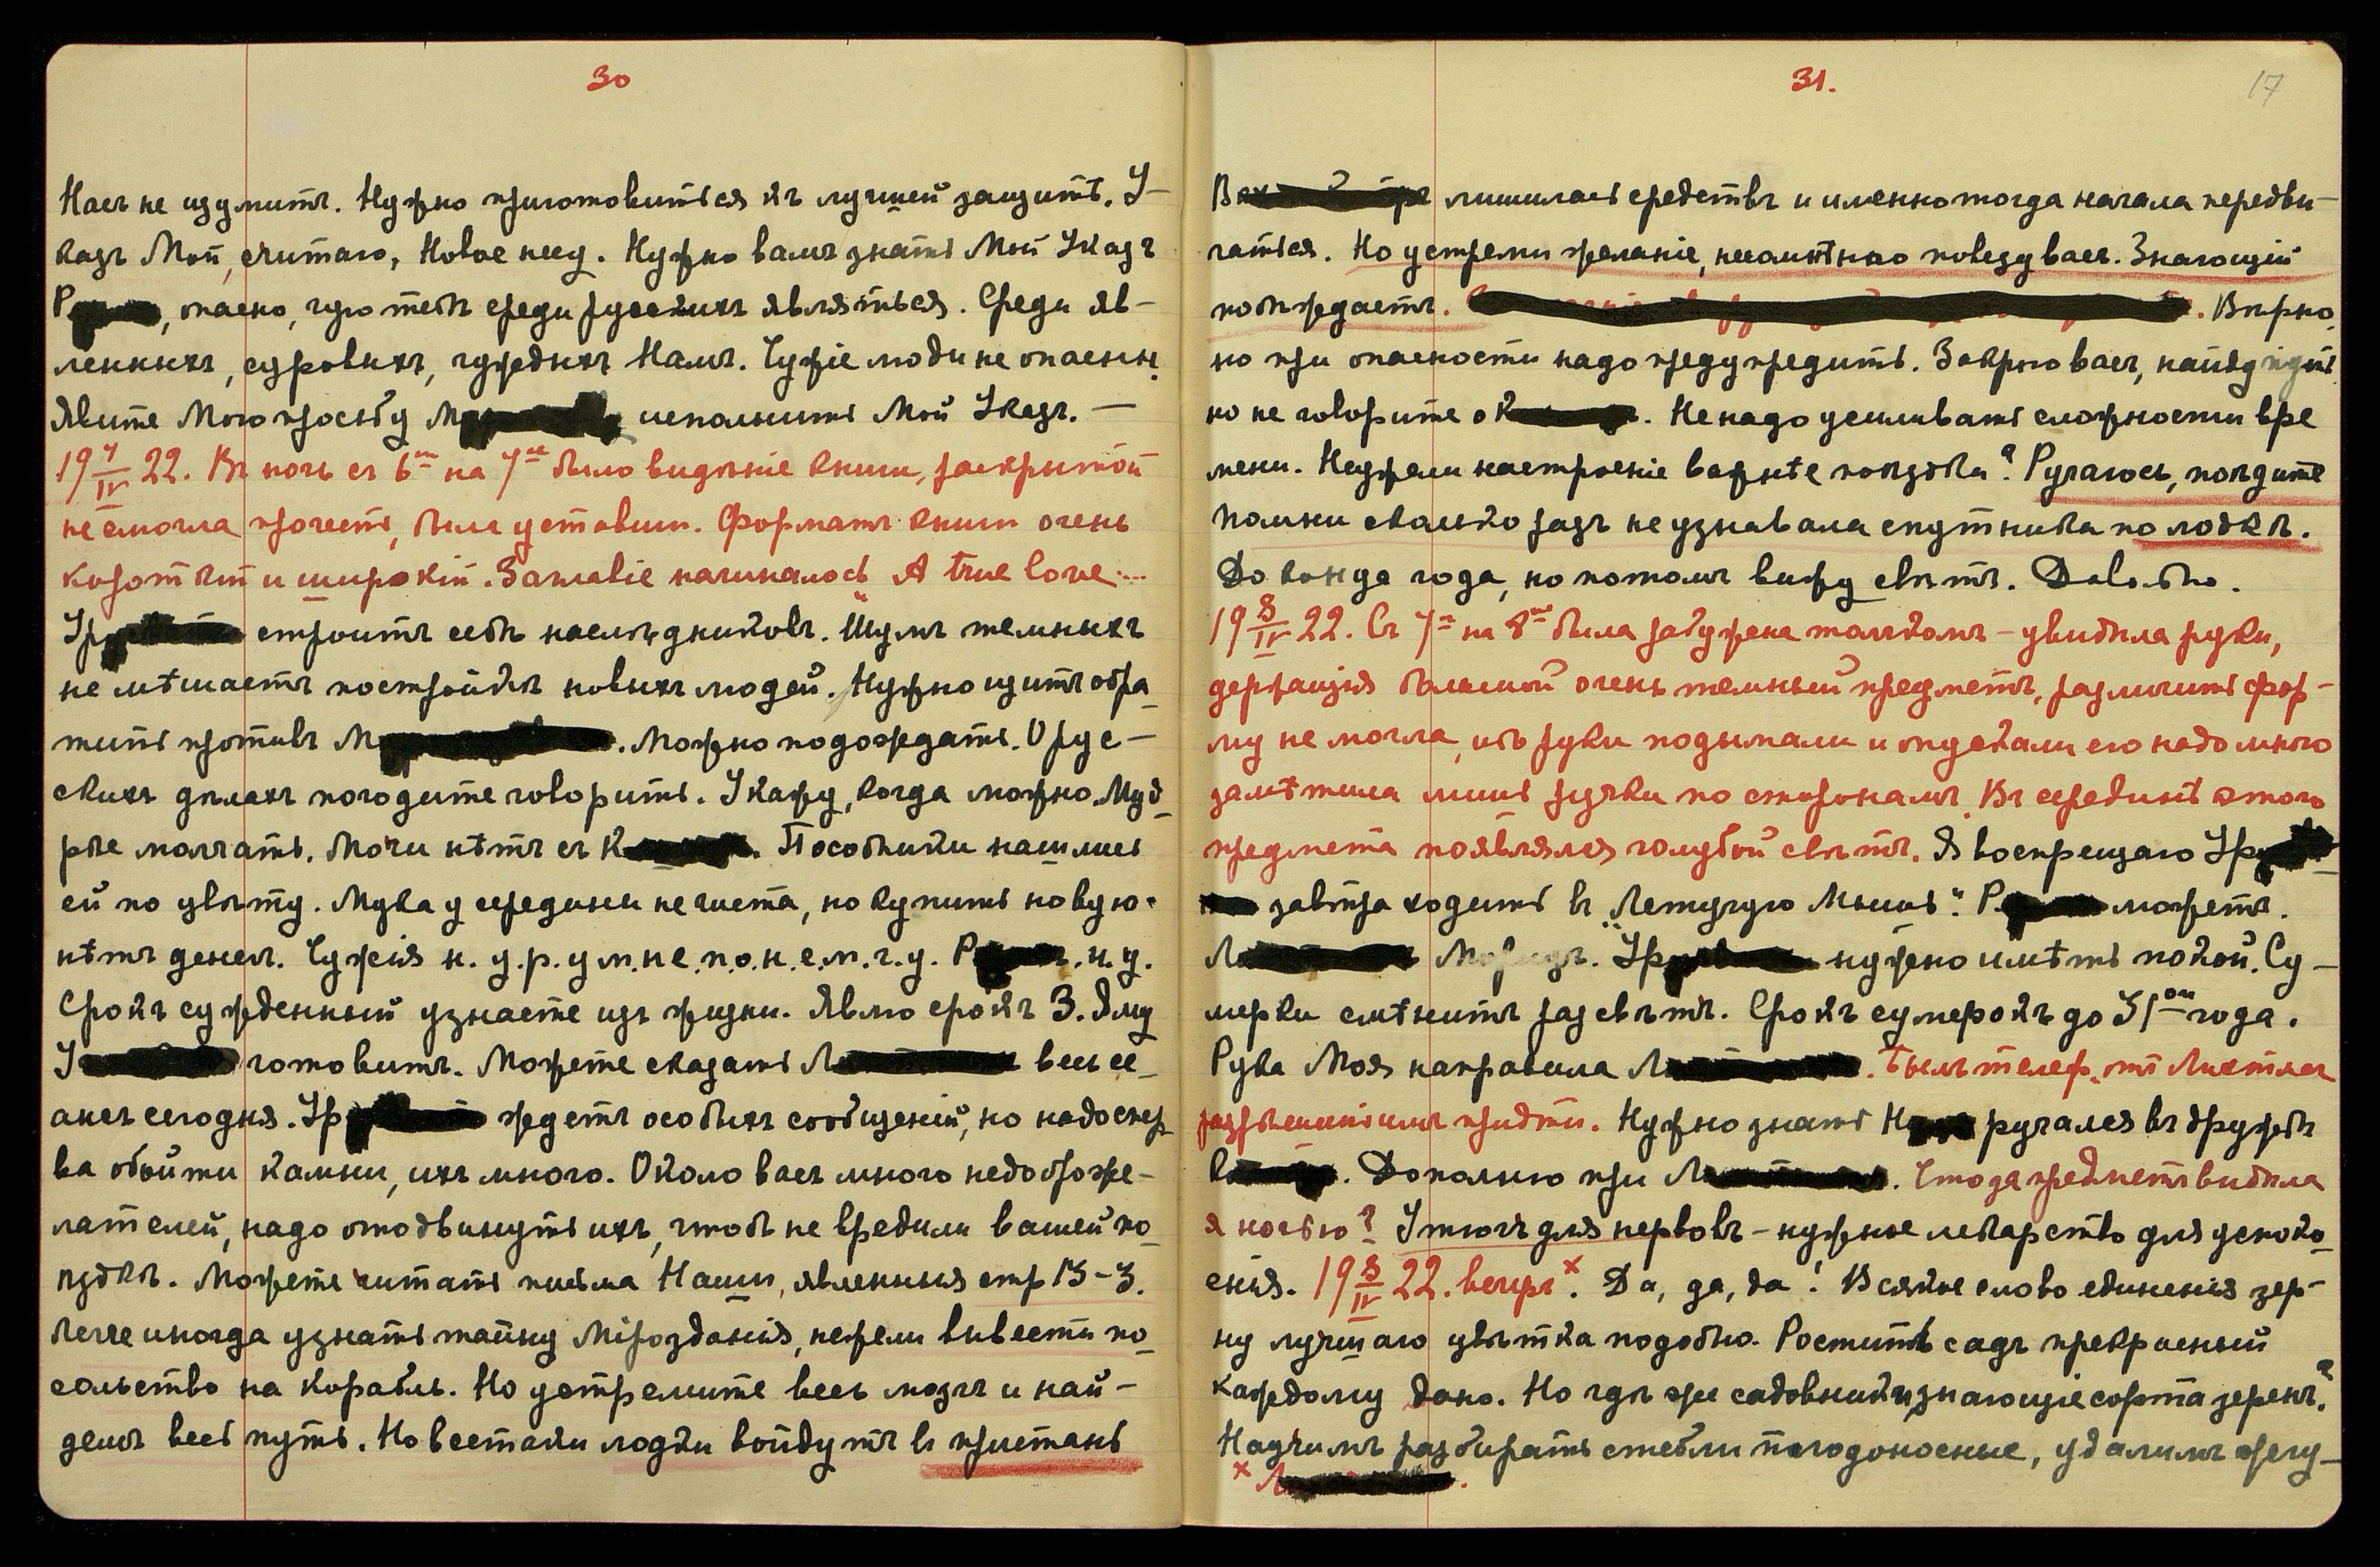 30
Насъ не изумитъ. Нужно приготовиться къ лучшей защитѣ. У-
казъ Мой, считаю, Новое несу. Нужно вамъ знать Мой Указъ
Р , опасно, чую тебѣ среди русскихъ являться. Среди яв-
ленныхъ, суровыхъ, чуждыхъ Намъ. Чужіе люди не опасны.
Явите Мою просьбу М исполнить Мой Указъ. —
19 7/IV 22. Въ ночь съ 6го на 7ое было видѣніе книги, раскрытой
не смогла прочесть, была уставши. Форматъ книги очень
коротъкій и широкій. Заглавіе начиналось „A true love....
Ур строитъ себѣ наслѣдниковъ. Шумъ темныхъ
не мѣшаетъ постройкѣ новыхъ людей. Нужно щитъ обра-
тить противъ М . Можно подождать. О рус-
скихъ дѣлахъ погодите говорить. Укажу, когда можно. Муд-
рѣе молчать. Мочи нѣтъ съ К . Пособники нашлись
ей по цвѣту. Мука у середины не чиста, но купить новую-
нѣтъ денегъ. Чужія н. у. р. у м. н е. п. о. н. е. м. г. у. Р . н. у.
Срокъ сужденный узнаете изъ жизни. Явлю срокъ 3. Яму
У готовитъ. Можете сказать Л весь се-
ансъ сегодня. Ур ждетъ особыхъ сообщеній, но надо спер-
ва обойти камни, ихъ много. Около васъ много недоброже-
лателей, надо отодвинуть ихъ, чтобъ не вредили вашей по-
ѣздкѣ. Можете читать письма Наши, явленныя стр 13-3.
Легче иногда узнать тайну Мірозданія, нежели вывести по-
сольство на корабль. Но устремите весь мозгъ и най-
демъ весь путь. Но всетаки лодки войдутъ въ пристань
31.
17
Вах лишилась средствъ и именно тогда начала передви-
гаться. Но устреми желаніе, несомнѣнно повезу васъ. Знающій
побѣждаетъ. . Вѣрно,
но при опасности надо предупредить. Закрою васъ, найду путь
но не говорите о К . Не надо усиливать сложности вре
мени. Неужели настроеніе важнѣе поѣздки? Ручаюсь, поѣдите
Помни сколько разъ не узнавала спутника по лодкѣ.
До конца года, но потомъ вижу свѣтъ. Довольно.
19 8/IV 22. Съ 7го на 8ое была разбужена толчкомъ – увидѣла руки,
держащія большой очень темный предметъ, различить фор-
му не могла, обѣ руки подымали и опускали его надо мною
замѣтила лишь ручки по сторонамъ. Въ серединѣ этого
предмета появлялся голубой свѣтъ. Я воспрещаю Ур
завтра ходить въ „Летучую Мышь“. Р можетъ.
Л Морицъ. Ур нужно имѣть покой. Су-
мерки смѣнитъ разсвѣтъ. Срокъ сумерокъ до 31ого года.
Рука Моя направила Л . Былъ телеф. отъ Лихтман
разрѣшить имъ придти. Нужно знать Н ручался въ дружбѣ
В . Дополню при Л . Что за предметъ видѣла
я ночью? Утюгъ для нервовъ – нужное лекарство для успоко-
енія. 19 8/IV 22. вечеръ x. Да, да, да! Всякое слово единенія зер-
ну лучшаго цвѣтка подобно. Роститѣ садъ прекрасный
каждому дано. Но гдѣ же садовники, знающіе сорта зеренъ?
Научимъ разбирать стебли плодоносные, удалимъ жгу-
x Л .